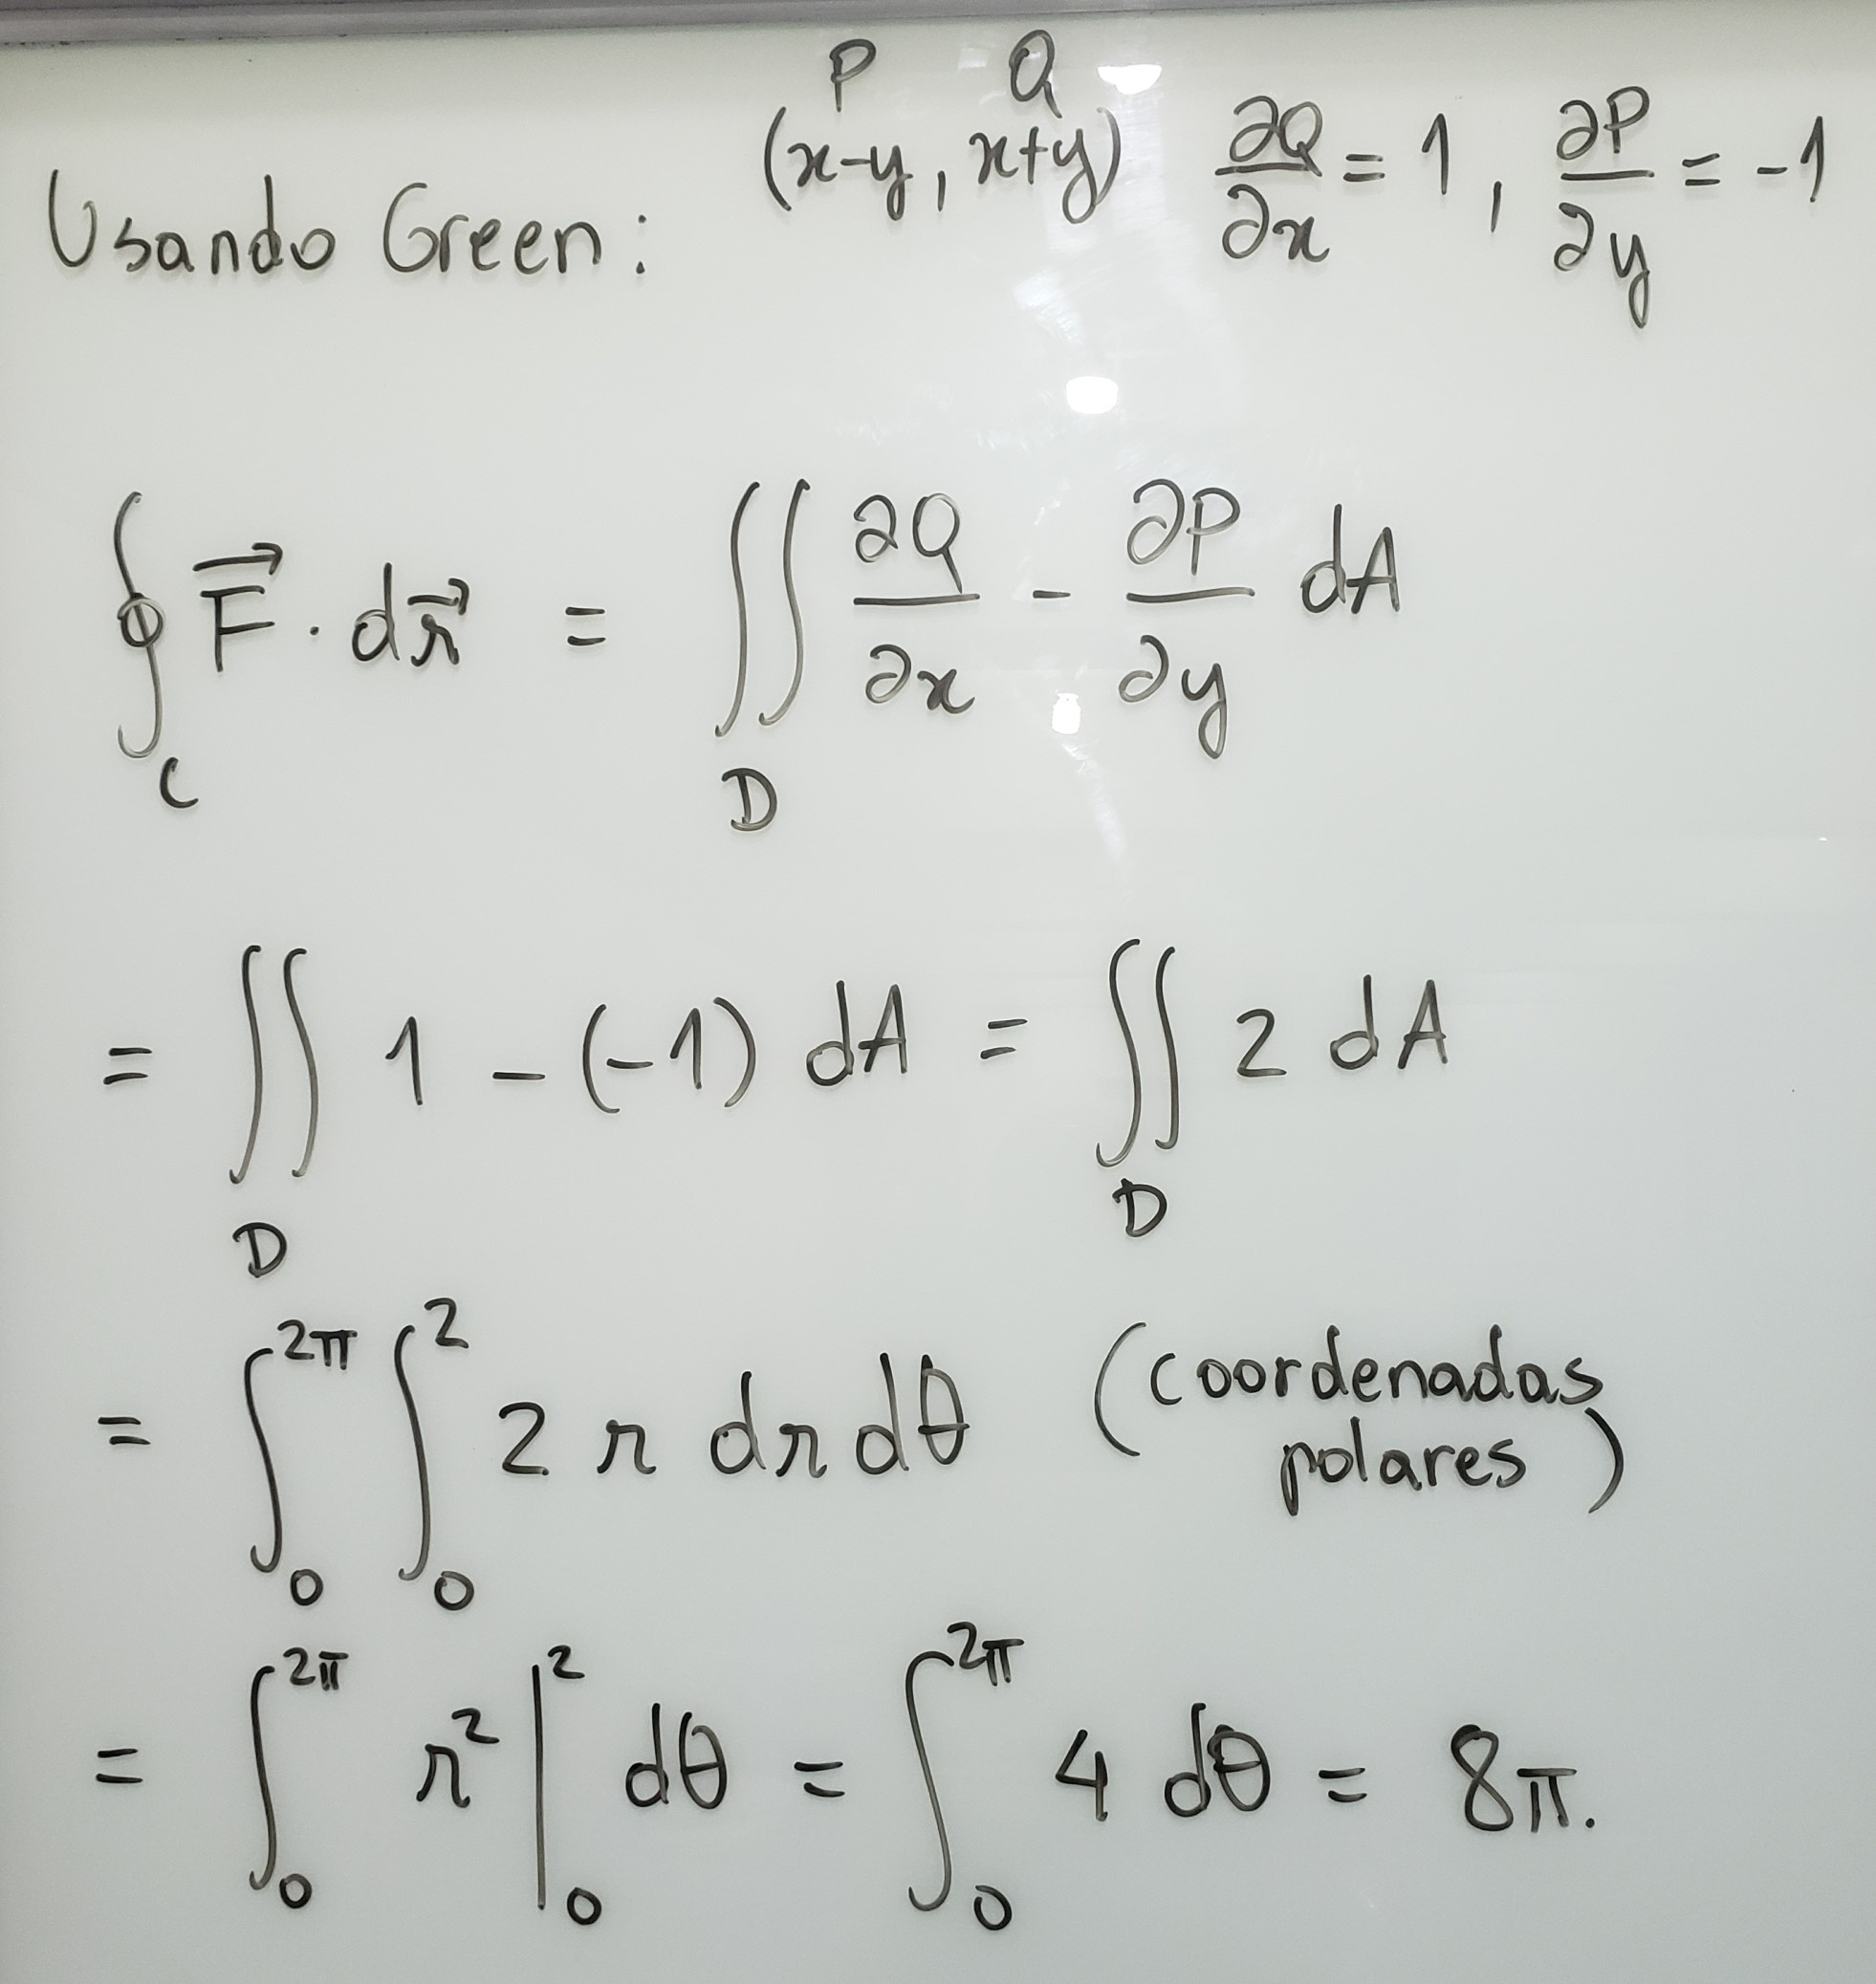 P Q
Usando Green: (x-y, x+y) ∂Q/∂x = 1, ∂P/∂y = -1
∮_C F⃗ · dr⃗ = ∬_D ∂Q/∂x - ∂P/∂y dA
= ∬_D 1 - (-1) dA = ∬_D 2 dA
= ∫_0^{2π} ∫_0^2 2 r dr dθ (coordenadas polares)
= ∫_0^{2π} r² |_0^2 dθ = ∫_0^{2π} 4 dθ = 8π.